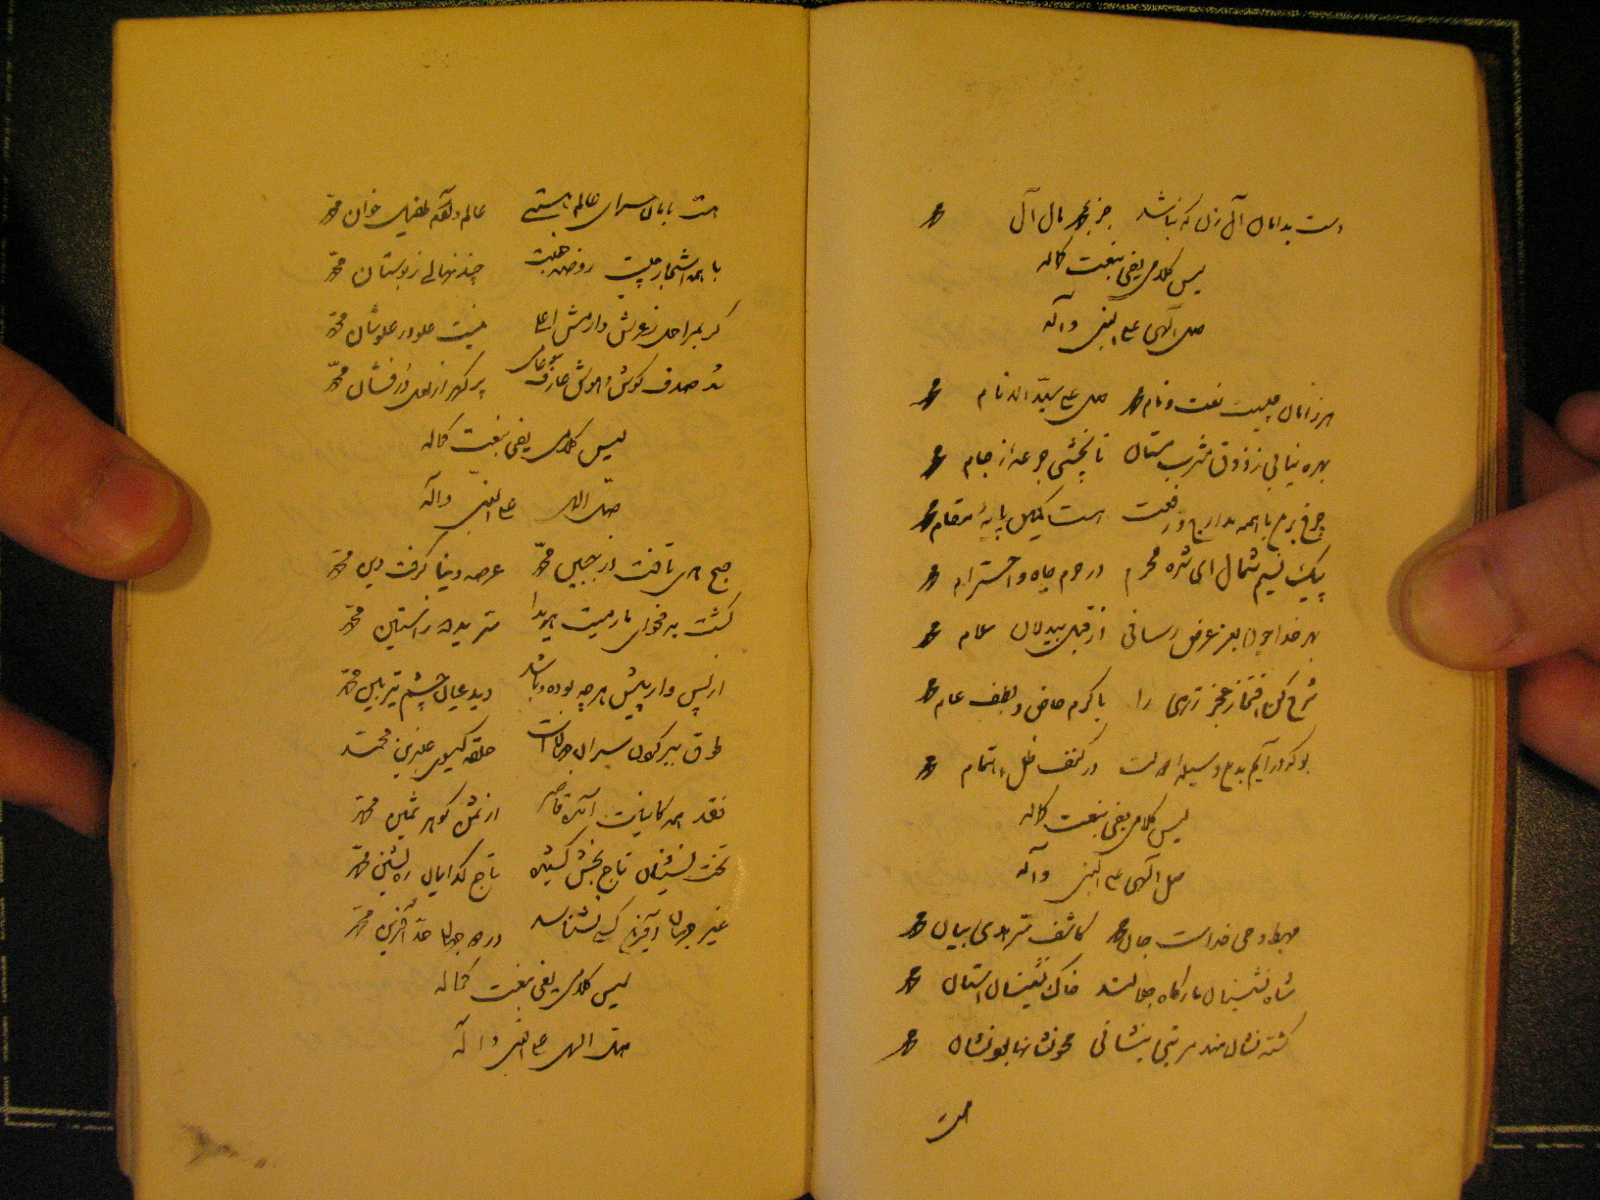 دست بدامان آل زن که نباشد جز بمحمد مآل آل محمد
لیس کلامی یفی بنعت کماله
صل الهی علی النبی وآله
هر زمان چیست نعت و نام محمد صل علی سید الانام محمد
بهره نیابی ز ذوق مشرب مستان تا نچشی جرعهٔ از جام محمد
چرخ برین با همه مدارج رفعت هست یکی پایهٔ مقام محمد
پیک نسیم شمال ای شده محرم در حرم جاه و احترام محمد
بهر خدا چون بعز عرض رسانی از قبل بیدلان سلام محمد
شرح کن افتقار و عجز را با کرم خاص و لطف عام محمد
بو که در آیم بدین وسیله دولت در کنف ظل اهتمام محمد
لیس کلامی یفی بنعت کماله
صل الهی علی النبی وآله
مهبط وحی خداست جان محمد کاشف سر هدی بیان محمد
شاه نشینان بارگاه جلالند خاک نشینان آستان محمد
گشته نشانمند هر نبی بنشانی محو نشانها بود نشان محمد
هست
هست بابان سرای عالم هستی عالم و آدم طفیل خوان محمد
با همه اشجار چیست روضه جنت چند نهالی ز بوستان محمد
گر بمراحل ز عرش دارمش اعلی نیست علو در علو شان محمد
شد صدف گوش و هوش عارف جامی پر گهر از لعل درفشان محمد
لیس کلامی یفی بنعت کماله
صلی الهی علی النبی وآله
صبح هدی تافت از جبین محمد عرصه دنیا گرفت دین محمد
گشت به فحوای مارمیت هویدا سر ید الله ز آستین محمد
از پس و از پیش هر چه بوده و باشد دید عیان چشم تیزبین محمد
طوق بر گردن سران جهان است حلقه گیسوی عنبرین محمد
نقد همه کاینات آمده قاصر از ثمن گوهر ثمین محمد
تخت نشینان تاج بخش گشته تاج گدایان ره نشین محمد
غیر جهان آفرین کسی نشناسد در دو جهان حد آفرین محمد
لیس کلامی یفی بنعت کماله
صلی الهی علی النبی وآله